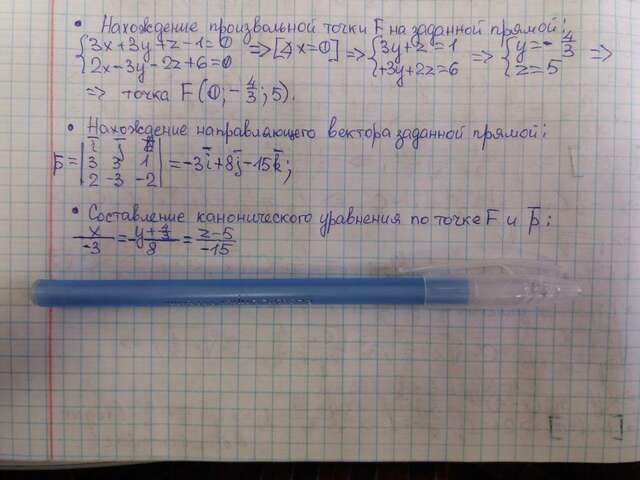 • Нахождение произвольной точки F на заданной прямой:
{3x+3y+z-1=0 {2x-3y-2z+6=0 => [x=0] => {3y+z=1 {+3y+2z=6 => {y=-4/3 {z=5 =>
=> точка F(0; -4/3; 5).
• Нахождение направляющего вектора заданной прямой:
p̄ = |i̅ j̅ k̅; 3 3 1; 2 -3 -2| = -3i̅+8j̅-15k̅;
• Составление канонического уравнения по точке F и p̄:
x/-3 = (y+4/3)/8 = (z-5)/-15